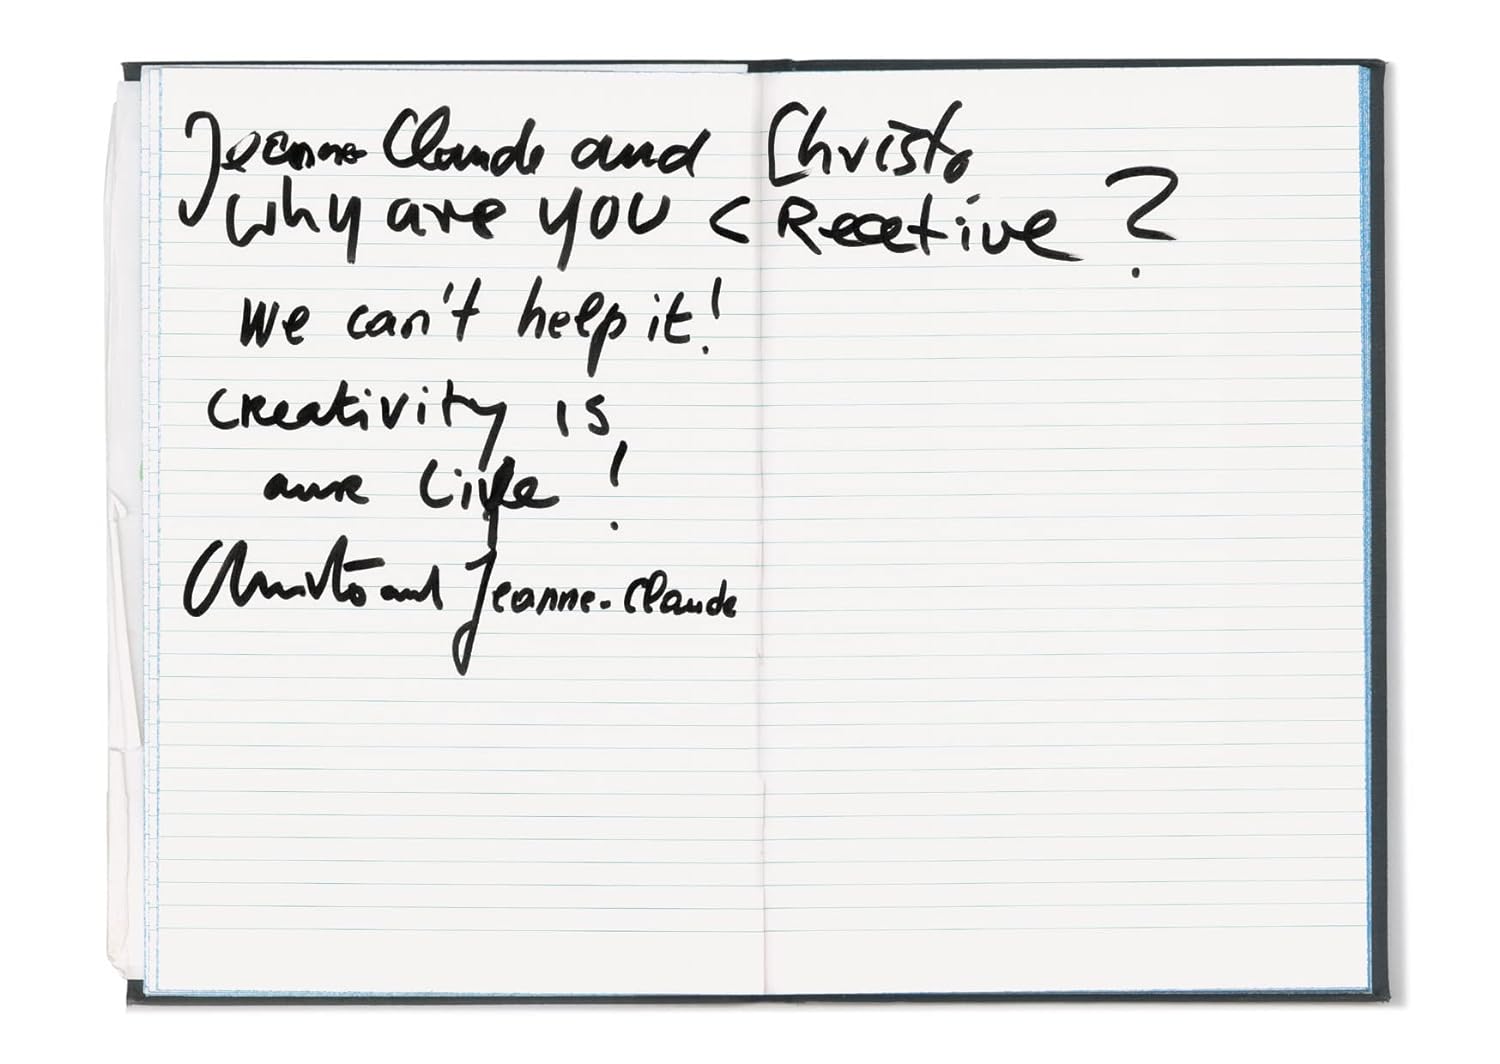 Jeanne Claude and Christo
Why are you creative?
We can't help it!
creativity is
our life!
Christo and Jeanne-Claude